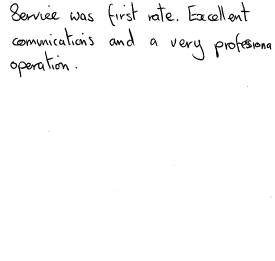 Service was first rate. Excellent
comunications and a very profesiona
operation.